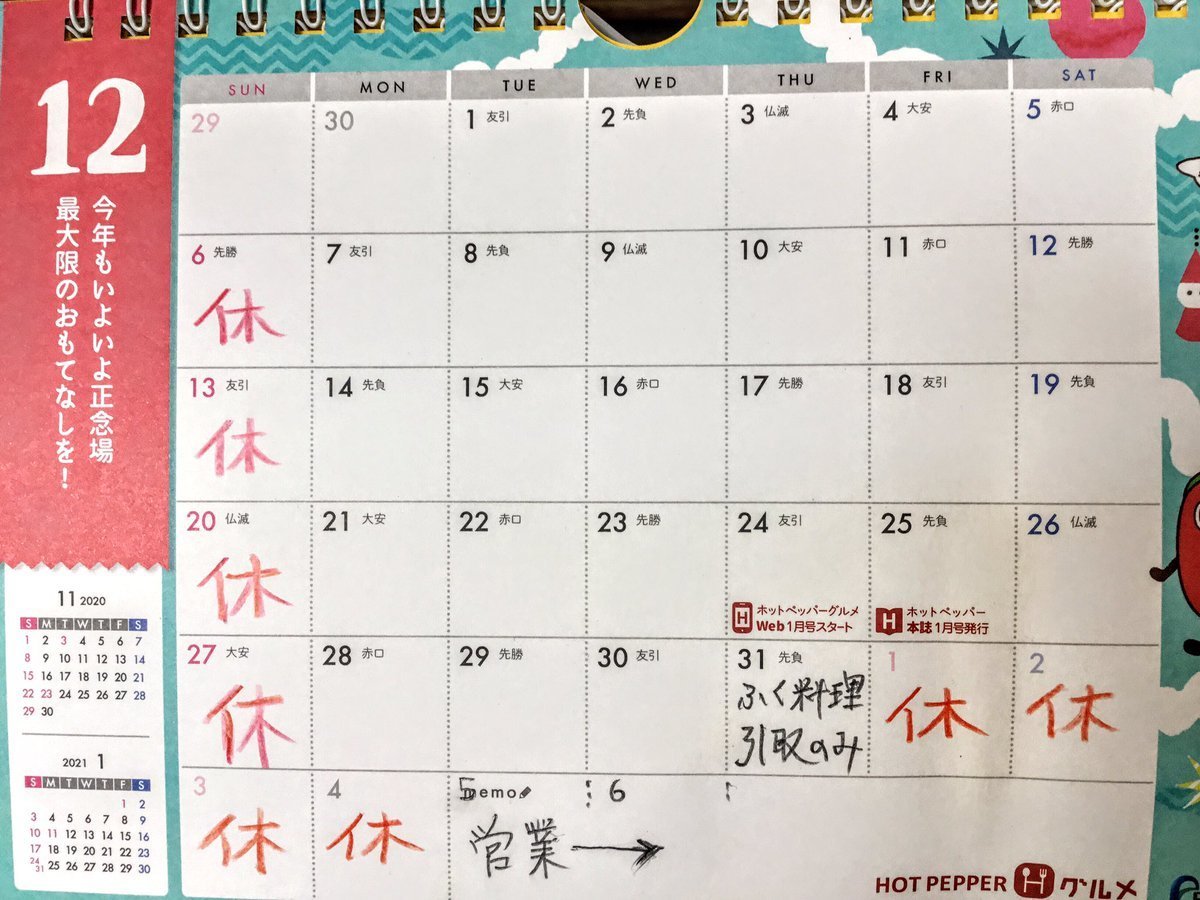 12
今年もいよいよ正念場
最大限のおもてなしを！
SUN MON TUE WED THU FRI SAT
29 30 1 友引 2 先負 3 仏滅 4 大安 5 赤口
6 先勝 7 友引 8 先負 9 仏滅 10 大安 11 赤口 12 先勝
休
13 友引 14 先負 15 大安 16 赤口 17 先勝 18 友引 19 先負
休
20 仏滅 21 大安 22 赤口 23 先勝 24 友引 25 先負 26 仏滅
休
ホットペッパーグルメ
Web 1月号スタート
ホットペッパー
本誌 1月号発行
27 大安 28 赤口 29 先勝 30 友引 31 先負 1 2
休
ふく料理
引取のみ
休 休
3 4 5 memo 6
休 休 営業→
HOT PEPPER グルメ
11 2020
S M T W T F S
1 2 3 4 5 6 7
8 9 10 11 12 13 14
15 16 17 18 19 20 21
22 23 24 25 26 27 28
29 30
2021 1
S M T W T F S
1 2
3 4 5 6 7 8 9
10 11 12 13 14 15 16
17 18 19 20 21 22 23
24 31 25 26 27 28 29 30